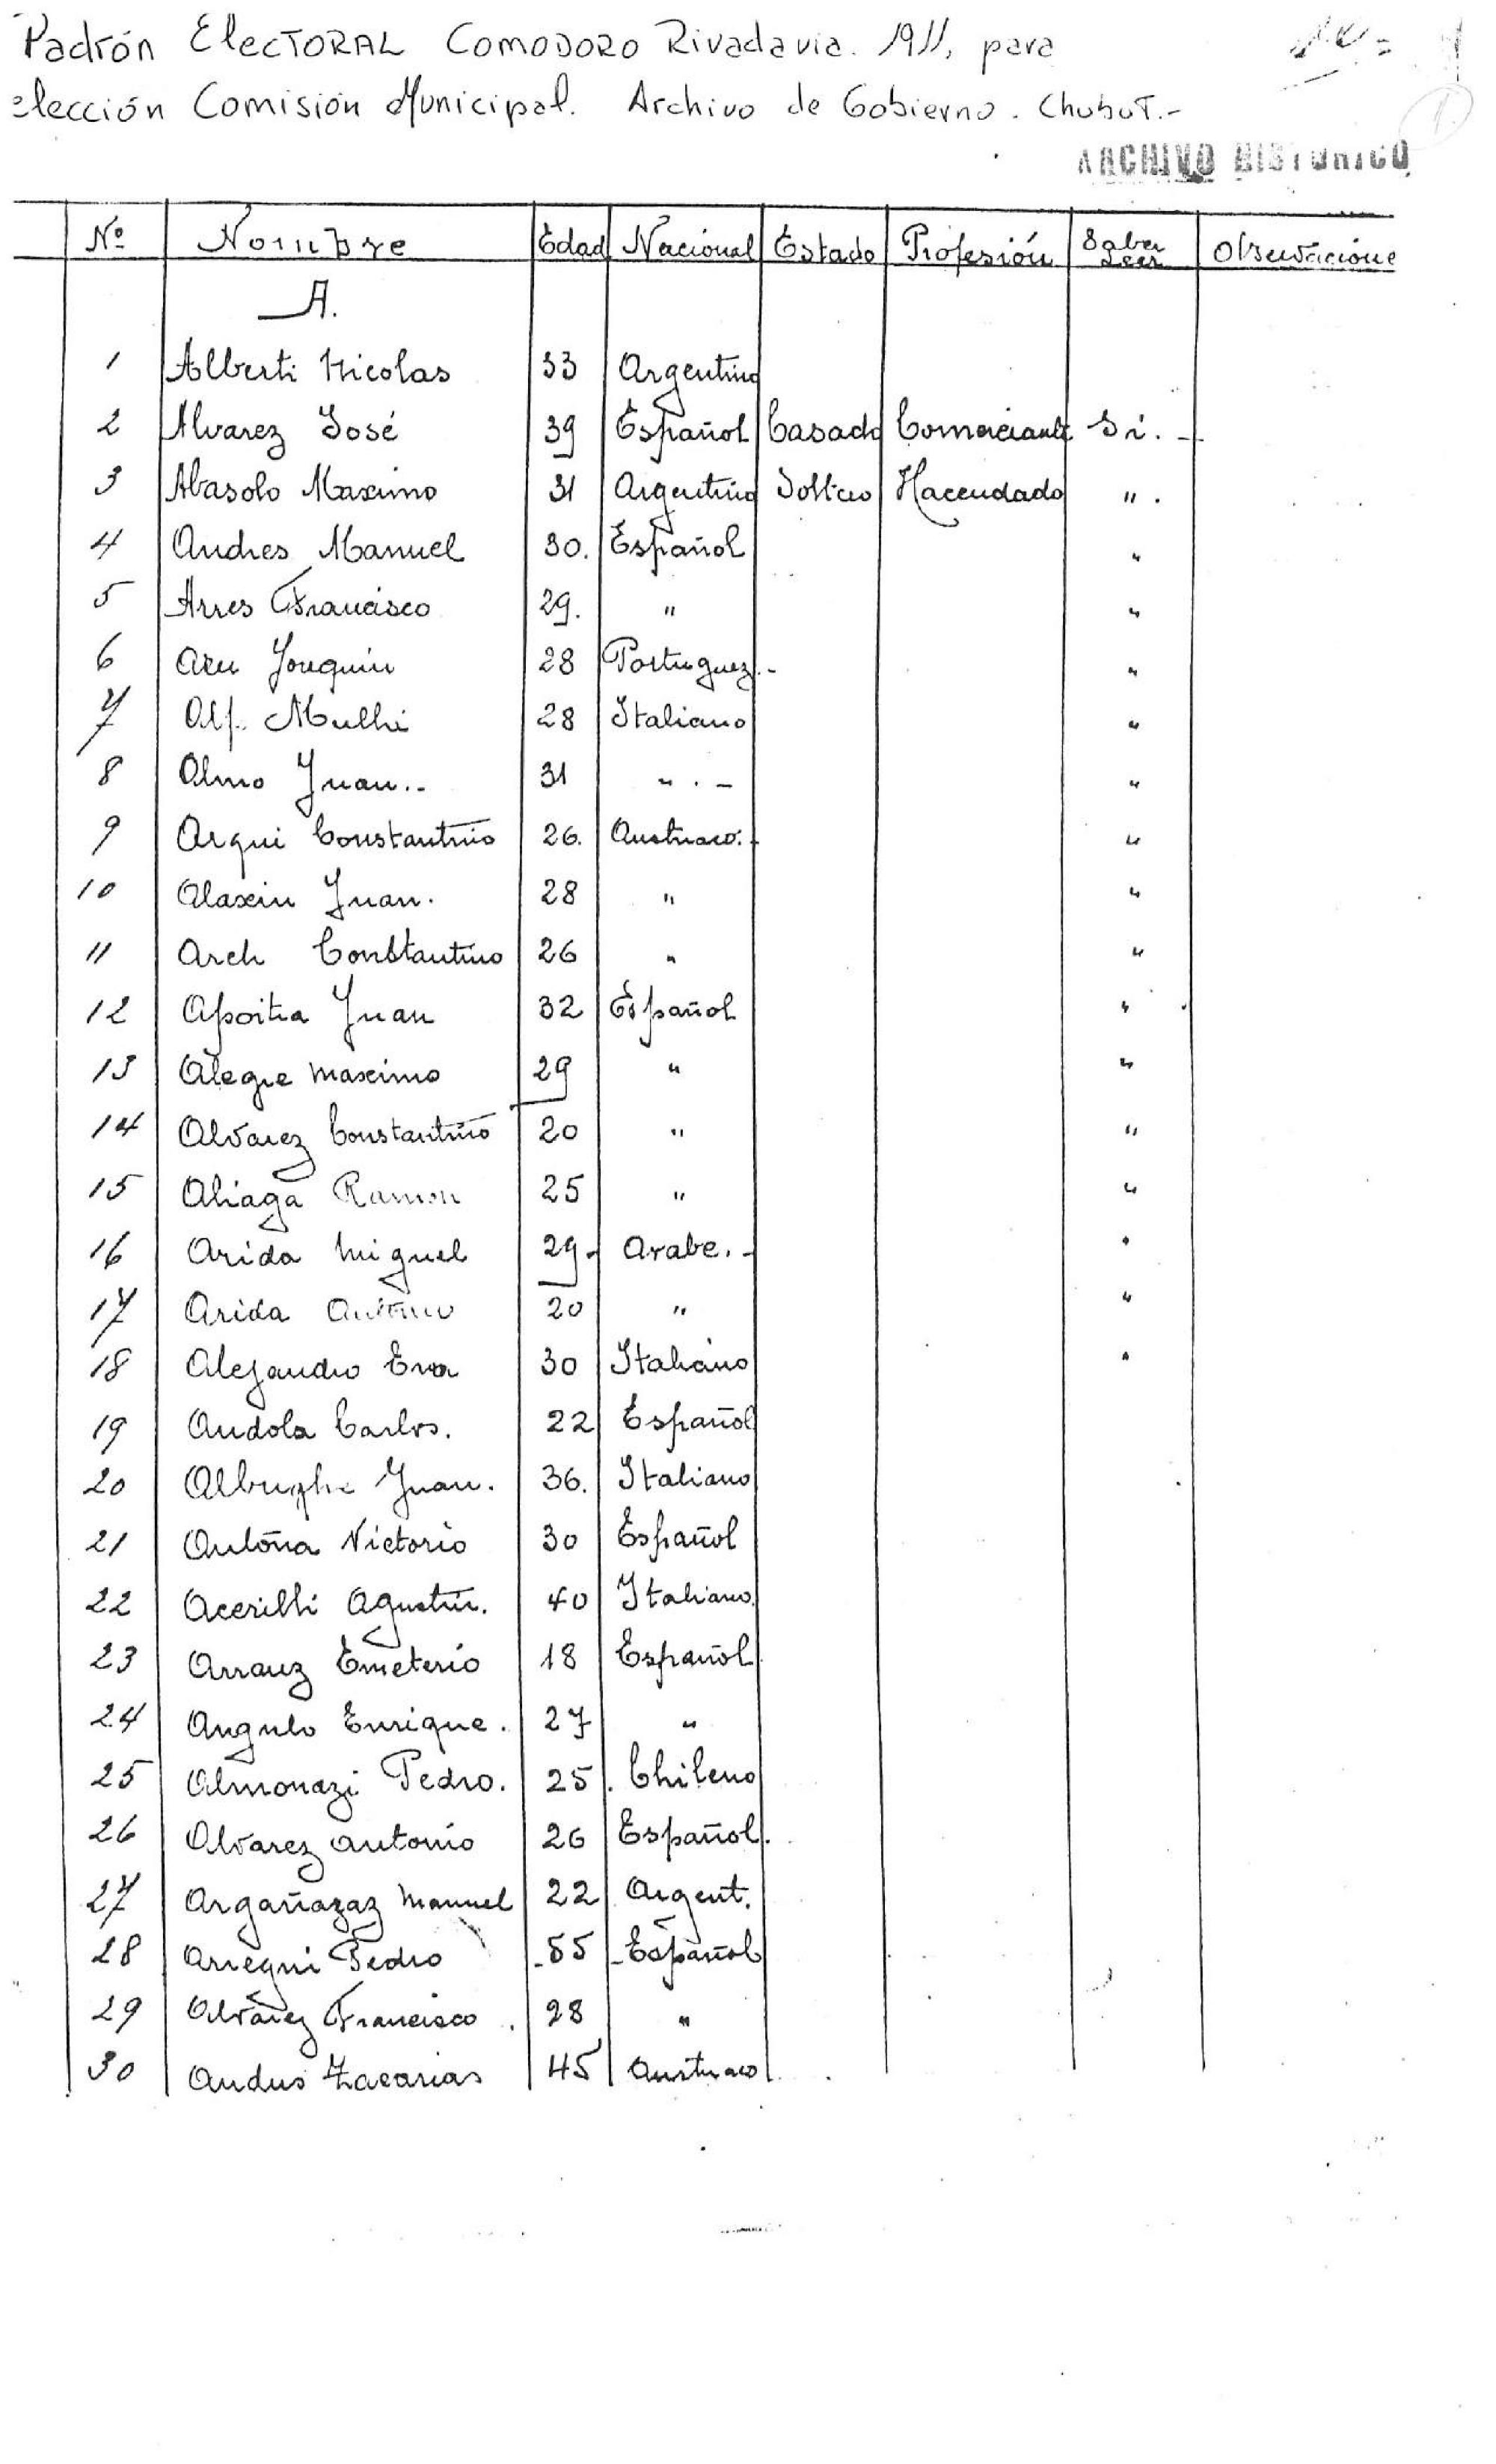 Padrón Electoral Comodoro Rivadavia. 1911, para
elección Comisión Municipal. Archivo de Gobierno. Chubut.-
ARCHIVO HISTORICO
Nº Nombre Edad Nacional Estado Profesión Saber Leer Observacione
A.
1 Alberti Nicolas 33 Argentino
2 Alvarez José 39 Español Casado Comerciante Si. -
3 Abasolo Maximo 31 Argentino Soltero Hacendado " .
4 Andres Manuel 30. Español "
5 Arres Francisco 29. " "
6 Joaquin 28 Portuguez.- "
7 Alf. Mulhi 28 Italiano "
8 Almo Juan.. 31 " . - "
9 Arqui Constantino 26. Austriaco. "
10 Alaxin Juan. 28 " "
11 Arch Constantino 26 " "
12 Apoitia Juan 32 Español "
13 Alegre Maximo 29 " "
14 Alvarez Constantino 20 " "
15 Aliaga Ramon 25 " "
16 Arida Miguel 29- Arabe. - "
17 Arida Antonio 20 " "
18 Alejandro 30 Italiano "
19 Andola Carlos. 22 Español
20 Juan. 36. Italiano
21 Antoña Victorio 30 Español
22 Acerilli Agustin. 40 Italiano.
23 Arrauz Emeterio 18 Español
24 Angulo Enrique. 27 "
25 Almonazi Pedro. 25. Chileno
26 Alvarez Antonio 26 Español.
27 Argañazaz Manuel 22 Argent.
28 Arregui Pedro 55 Español
29 Alvarez Francisco. 28 "
30 Zacarias 45 Austriaco